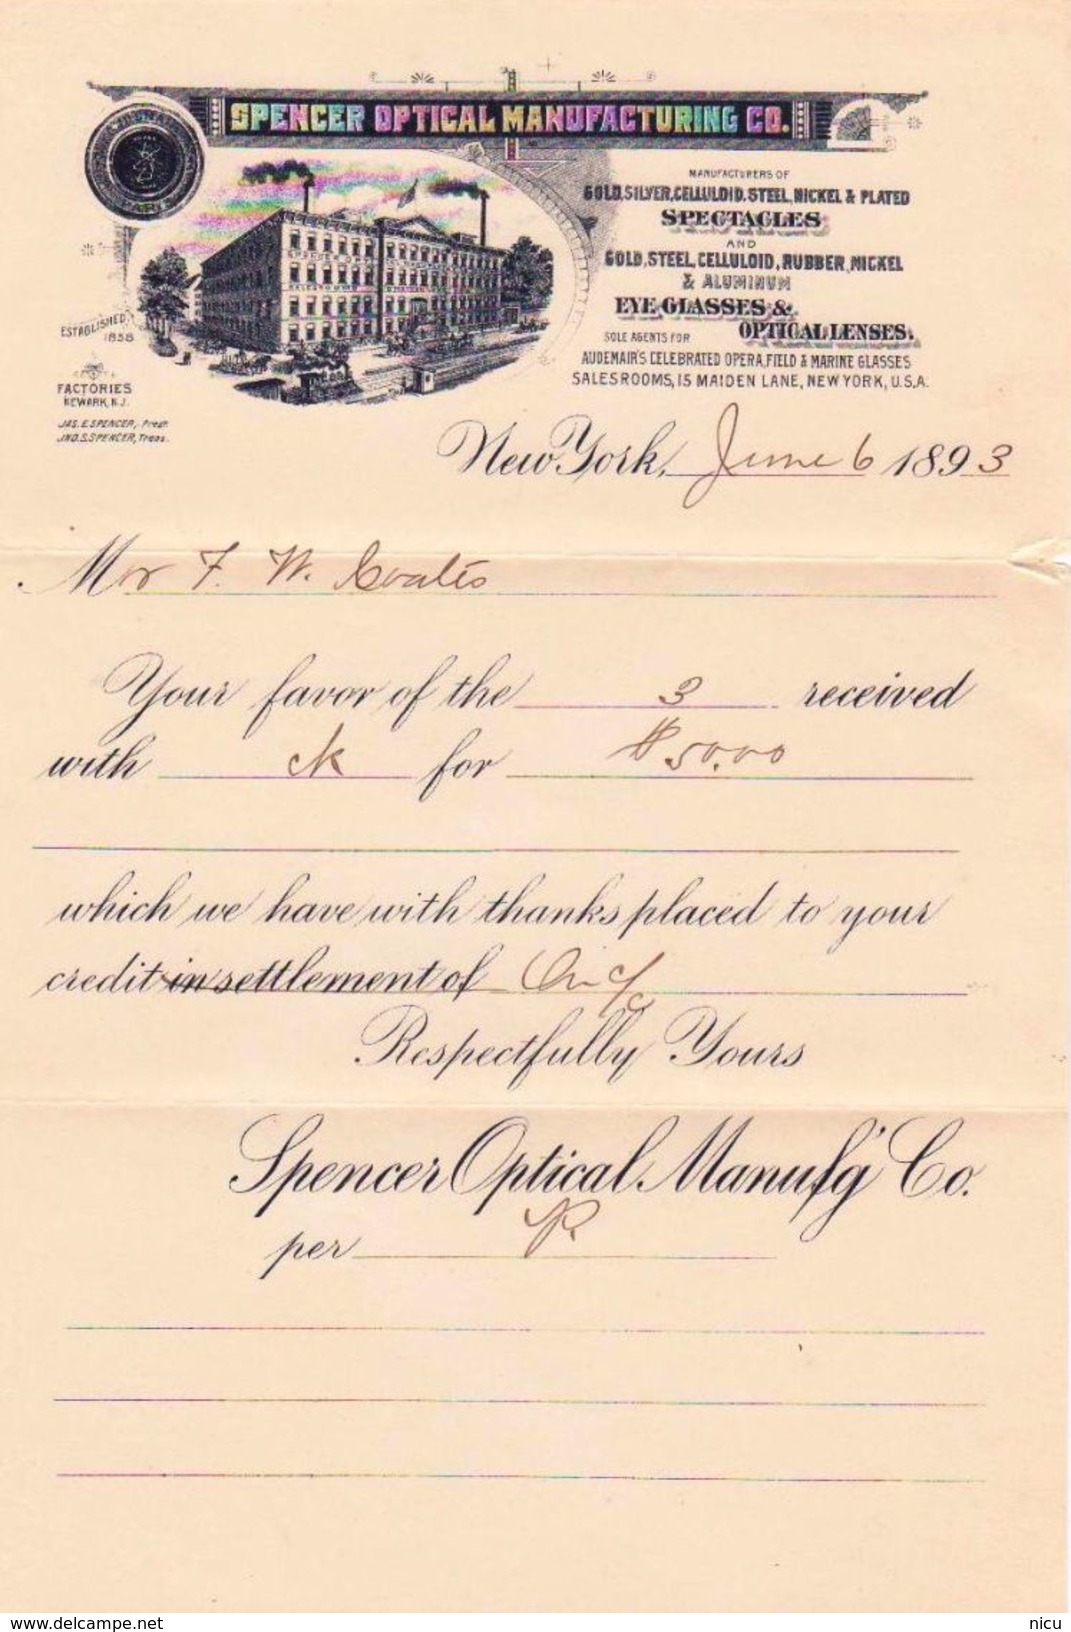 SPENCER OPTICAL MANUFACTURING CO.
MANUFACTURERS OF
GOLD, SILVER, CELLULOID, STEEL, NICKEL & PLATED
SPECTACLES
AND
GOLD, STEEL, CELLULOID, RUBBER, NICKEL
& ALUMINUM
EYE GLASSES &
OPTICAL LENSES.
SOLE AGENTS FOR
AUDEMAIR'S CELEBRATED OPERA, FIELD & MARINE GLASSES
SALESROOMS, 15 MAIDEN LANE, NEW YORK, U.S.A.
ESTABLISHED,
1858
FACTORIES
NEWARK, N.J.
JAS. E. SPENCER, Prest.
JNO. S. SPENCER, Treas.
New York, June 6 1893
Mr F. W. Coates
Your favor of the 3 received
with ck for $50.00
which we have with thanks placed to your
credit in settlement of On a/c
Respectfully Yours
Spencer Optical Manuf'g Co.
per
www.delcampe.net
nicu